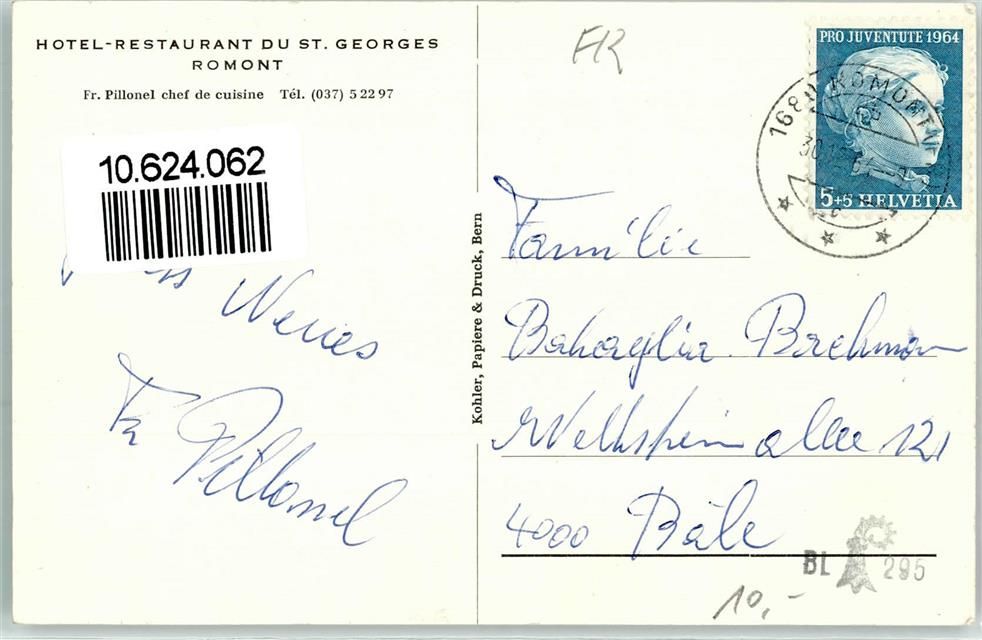 HOTEL-RESTAURANT DU ST. GEORGES
ROMONT
Fr. Pillonel chef de cuisine Tél. (037) 5 22 97
10.624.062
Fr Pillonel
Kohler, Papiere & Druck, Bern
FR
PRO JUVENTUTE 1964
1680 ROMONT
5+5 HELVETIA
Famílie
Brehm
allee 121
4000 Bâle
BL 295
10,-